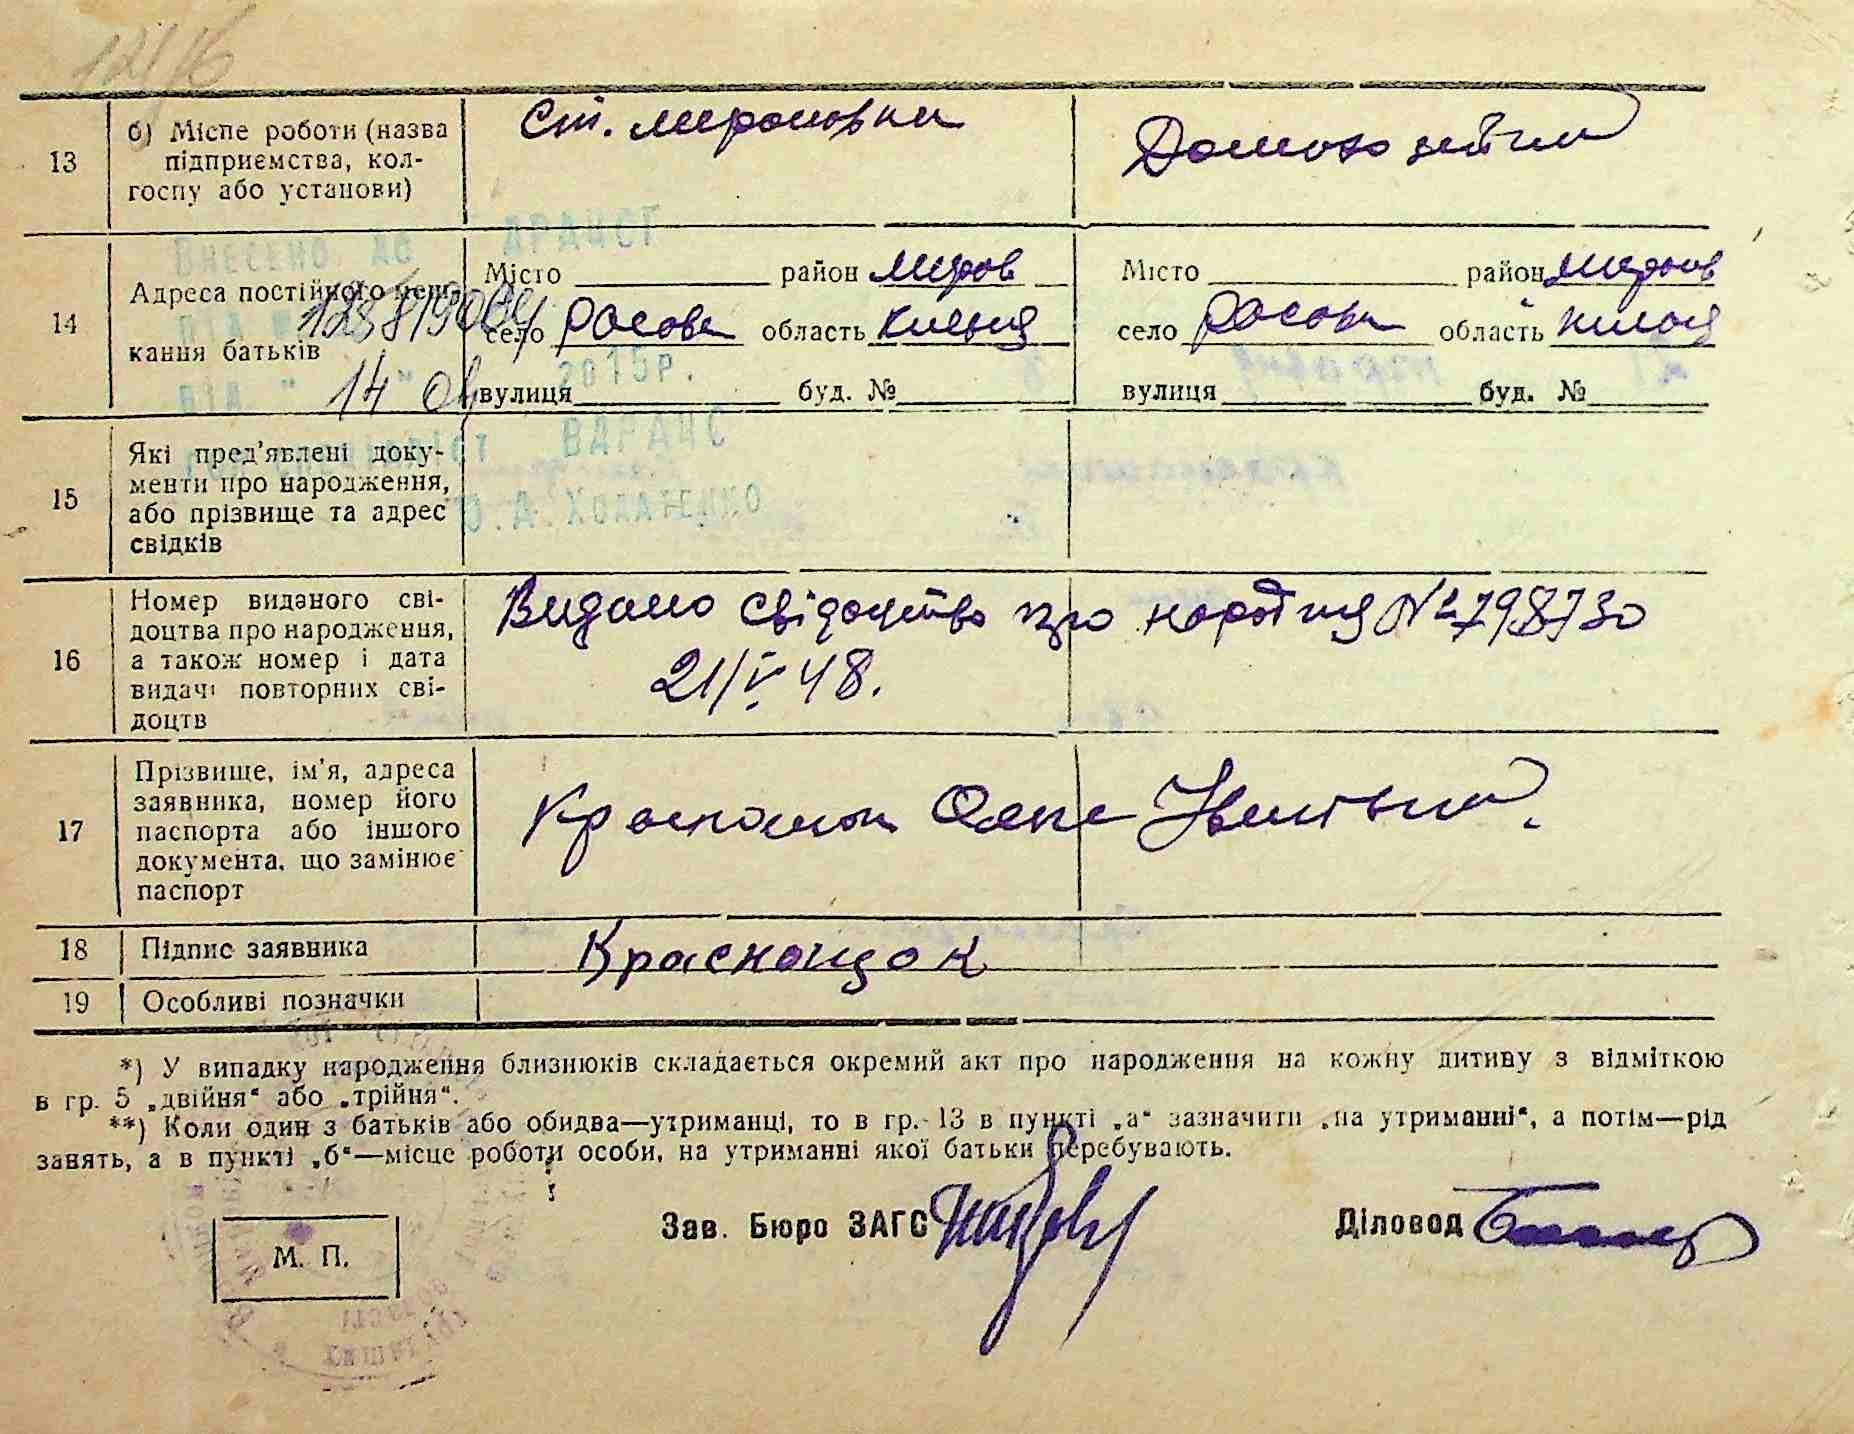 1216
13
б) Місце роботи (назва
підприємства, кол-
госпу або установи)
Ст. Мироновка
Домохозяйка
14
Адреса постійного меш-
кання батьків
Місто район Миров
село Росава область Київська
вулиця буд. №
Місто район Миров
село Росава область Київська
вулиця буд. №
Внесено до ДРАЦСГ
від 14 2015р.
ВДРАЦС
О.А.Ходатенко
15
Які пред'явлені доку-
менти про народження,
або прізвище та адрес
свідків
16
Номер виданого сві-
доцтва про народження,
а також номер і дата
видачі повторних сві-
доцтв
Видано свідоцтво про народження № 798730
21/V 48.
17
Прізвище, ім'я, адреса
заявника, номер його
паспорта або іншого
документа, що замінює
паспорт
Краснощок
18
Підпис заявника
Краснощок
19
Особливі позначки
*) У випадку народження близнюків складається окремий акт про народження на кожну дитину з відміткою
в гр. 5 „двійня“ або „трійня“.
**) Коли один з батьків або обидва—утриманці, то в гр. 13 в пункті „а“ зазначити „на утриманні“, а потім—рід
занять, а в пункті „б“—місце роботи особи, на утриманні якої батьки перебувають.
М. П.
Зав. Бюро ЗАГС
Діловод